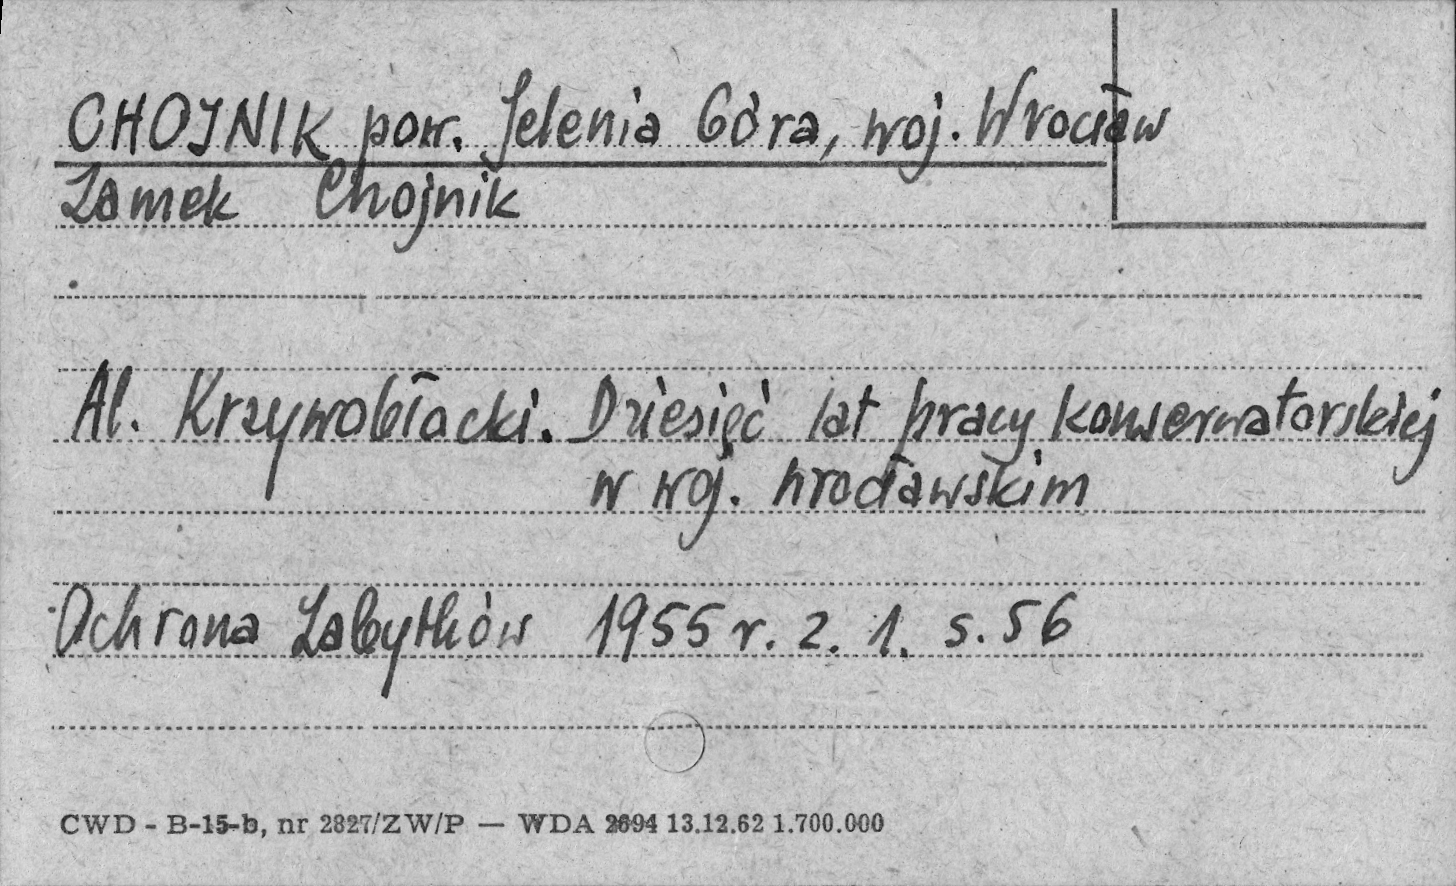 CHOJNIK pow. Jelenia Góra, woj. Wrocław
Zamek Chojnik
Al. Krzywobłocki. Dziesięć lat pracy konserwatorskiej
w woj. wrocławskim
Ochrona Zabytków 1955 r. z. 1. s. 56
CWD - B-15-b, nr 2827/ZW/P — WDA 2694 13.12.62 1.700.000